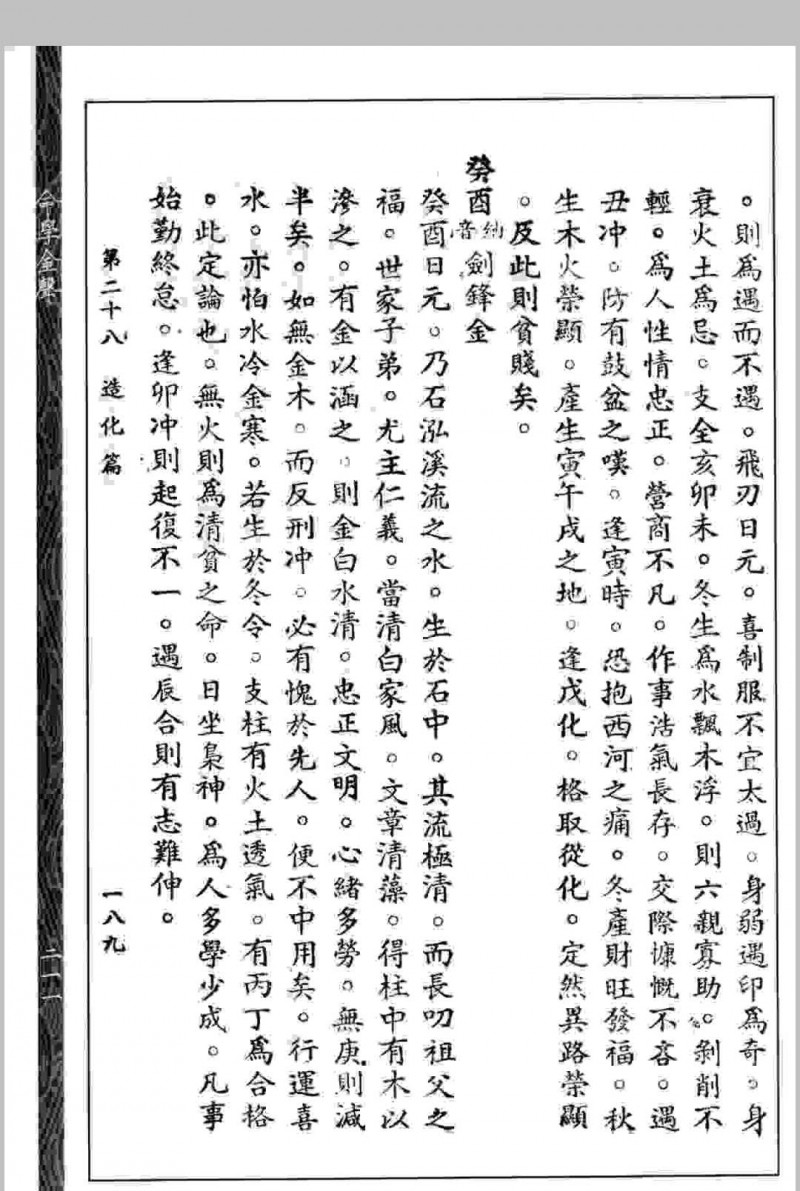 。則為遇而不遇。飛刃日元。喜制服不宜太過。身弱遇印為奇。身
衰火土為忌。支全亥卯未。冬生為水飄木浮。則六親寡助。剝削不
輕。為人性情忠正。營商不凡。作事浩氣長存。交際慷慨不吝。遇
丑冲。防有鼓盆之嘆。逢寅時。恐抱西河之痛。冬產財旺發福。秋
生木火榮顯。產生寅午戌之地。逢戊化。格取從化。定然異路榮顯
。反此則貧賤矣。
癸酉納音劍鋒金
癸酉日元。乃石泓溪流之水。生於石中。其流極清。而長叨祖父之
福。世家子弟。尤主仁義。當清白家風。文章清藻。得柱中有木以
滲之。有金以涵之。則金白水清。忠正文明。心緒多勞。無庚則減
半矣。如無金木。而反刑冲。必有愧於先人。便不中用矣。行運喜
水。亦怕水冷金寒。若生於冬令。支柱有火土透氣。有丙丁為合格
。此定論也。無火則為清貧之命。日坐梟神。為人多學少成。凡事
始勤終怠。逢卯冲則起復不一。遇辰合則有志難伸。
第二十八 造化篇
一八九
命學金聲
二一一